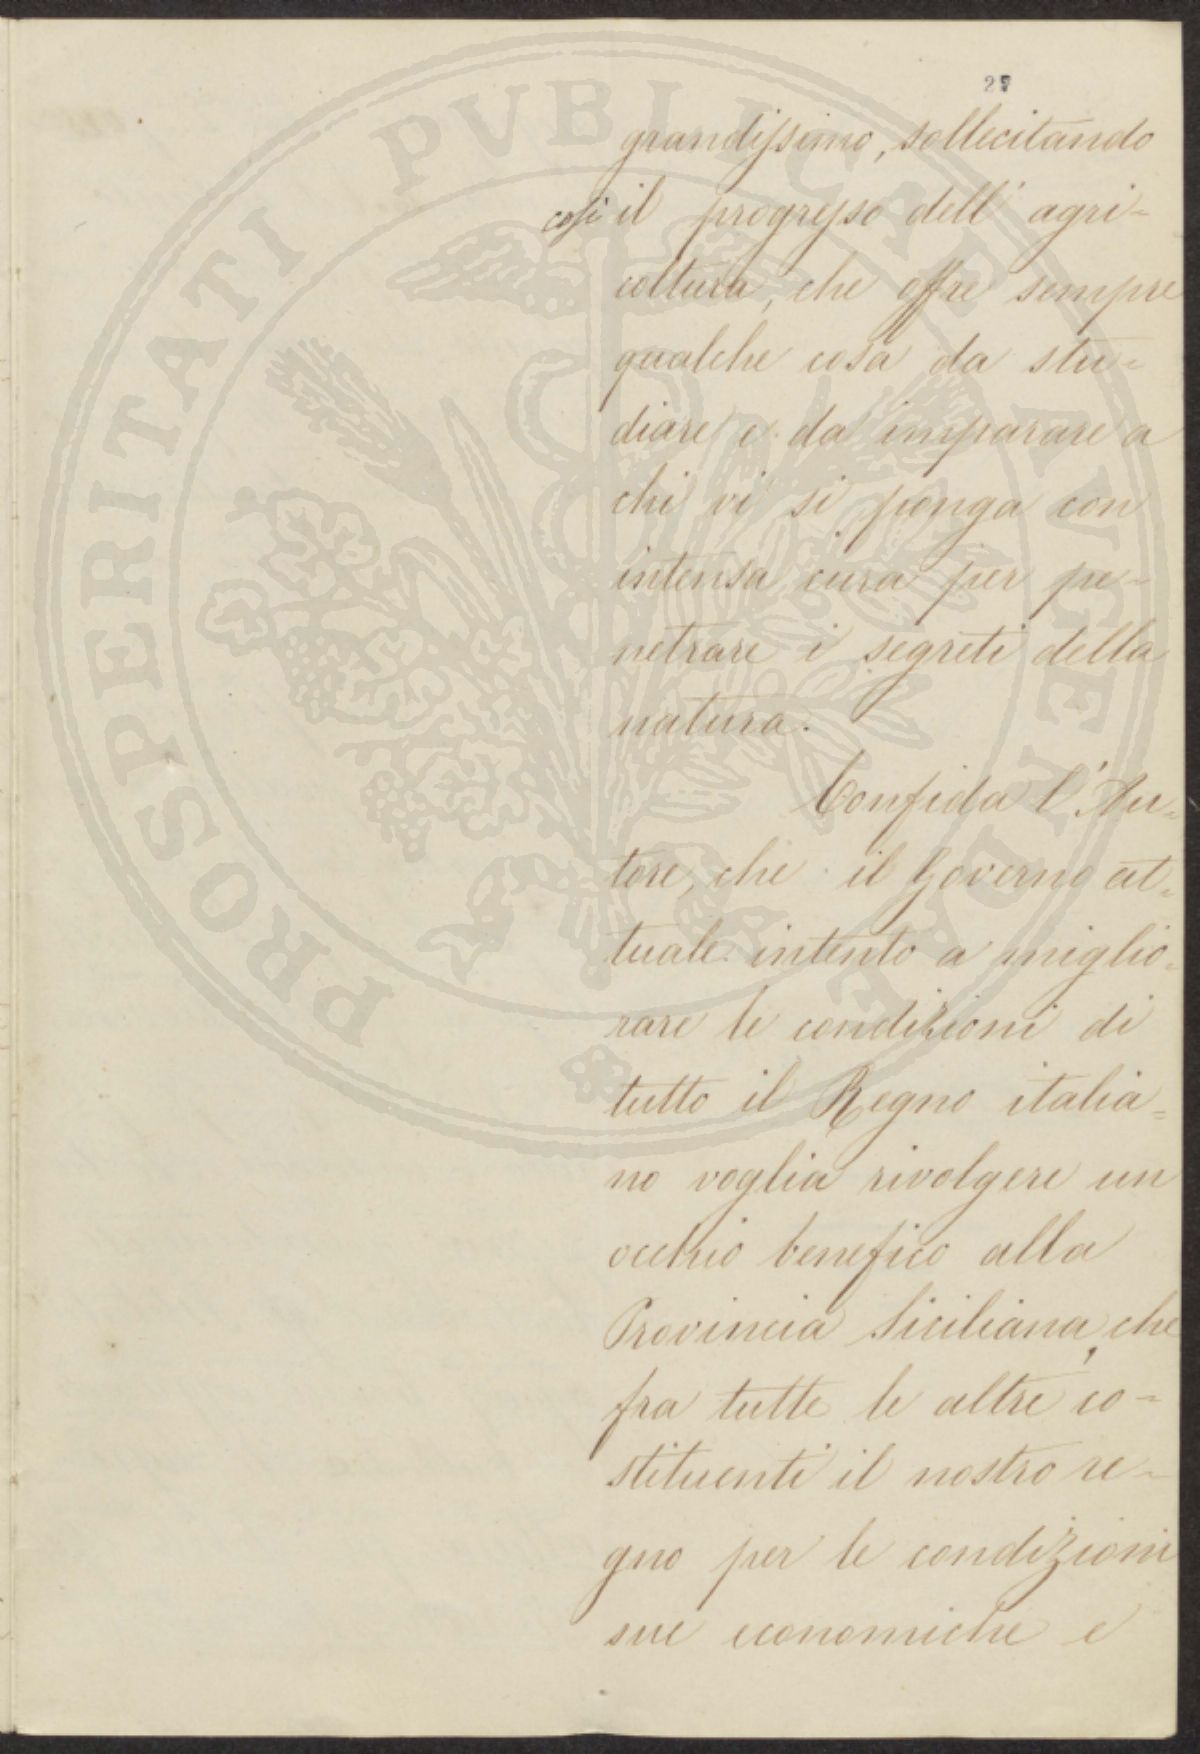 27
grandissimo, sollecitando
così il progresso dell'agri-
coltura, che offre sempre
qualche cosa da stu-
diare e da imparare a
chi vi si ponga con
intensa cura per pe-
netrare i segreti della
natura.
Confida l'Au-
tore, che il Governo at-
tuale intento a miglio-
rare le condizioni di
tutto il Regno italia-
no voglia rivolgere un
occhio benefico alla
Provincia Siciliana, che
fra tutte le altre co-
stituenti il nostro re-
gno per le condizioni
sue economiche e
PROSPERITATI PVBLICAE AVGENDAE